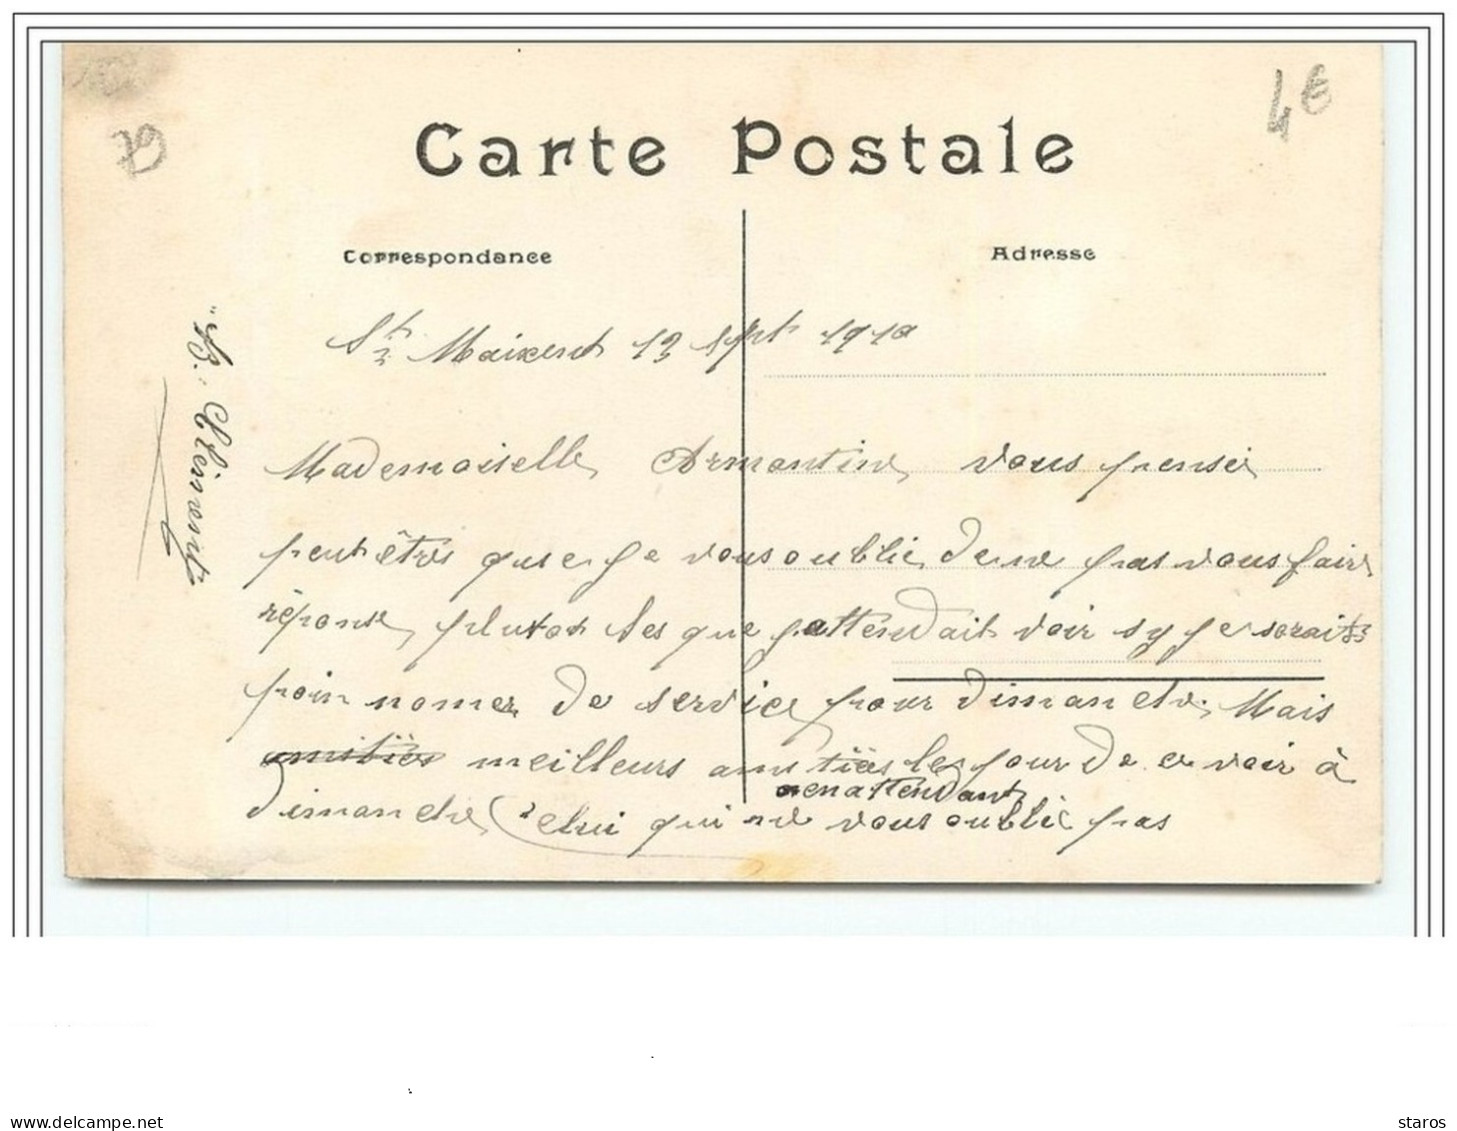 4€
Carte Postale
Correspondance
Adresse
St Maixent 13 Sept 1910
Mademoiselle Armantine vous pensée
peut êtres que je vous oublie de ne pas vous faire
réponse, plutot s'es que j'attendait voir sy je seraits
poin nomer de service pour dimanche, Mais
amitiés meilleurs amitiées les jour de
voir à
en attendant
dimanche celui qui ne vous oublie pas
delcampe.net
staros